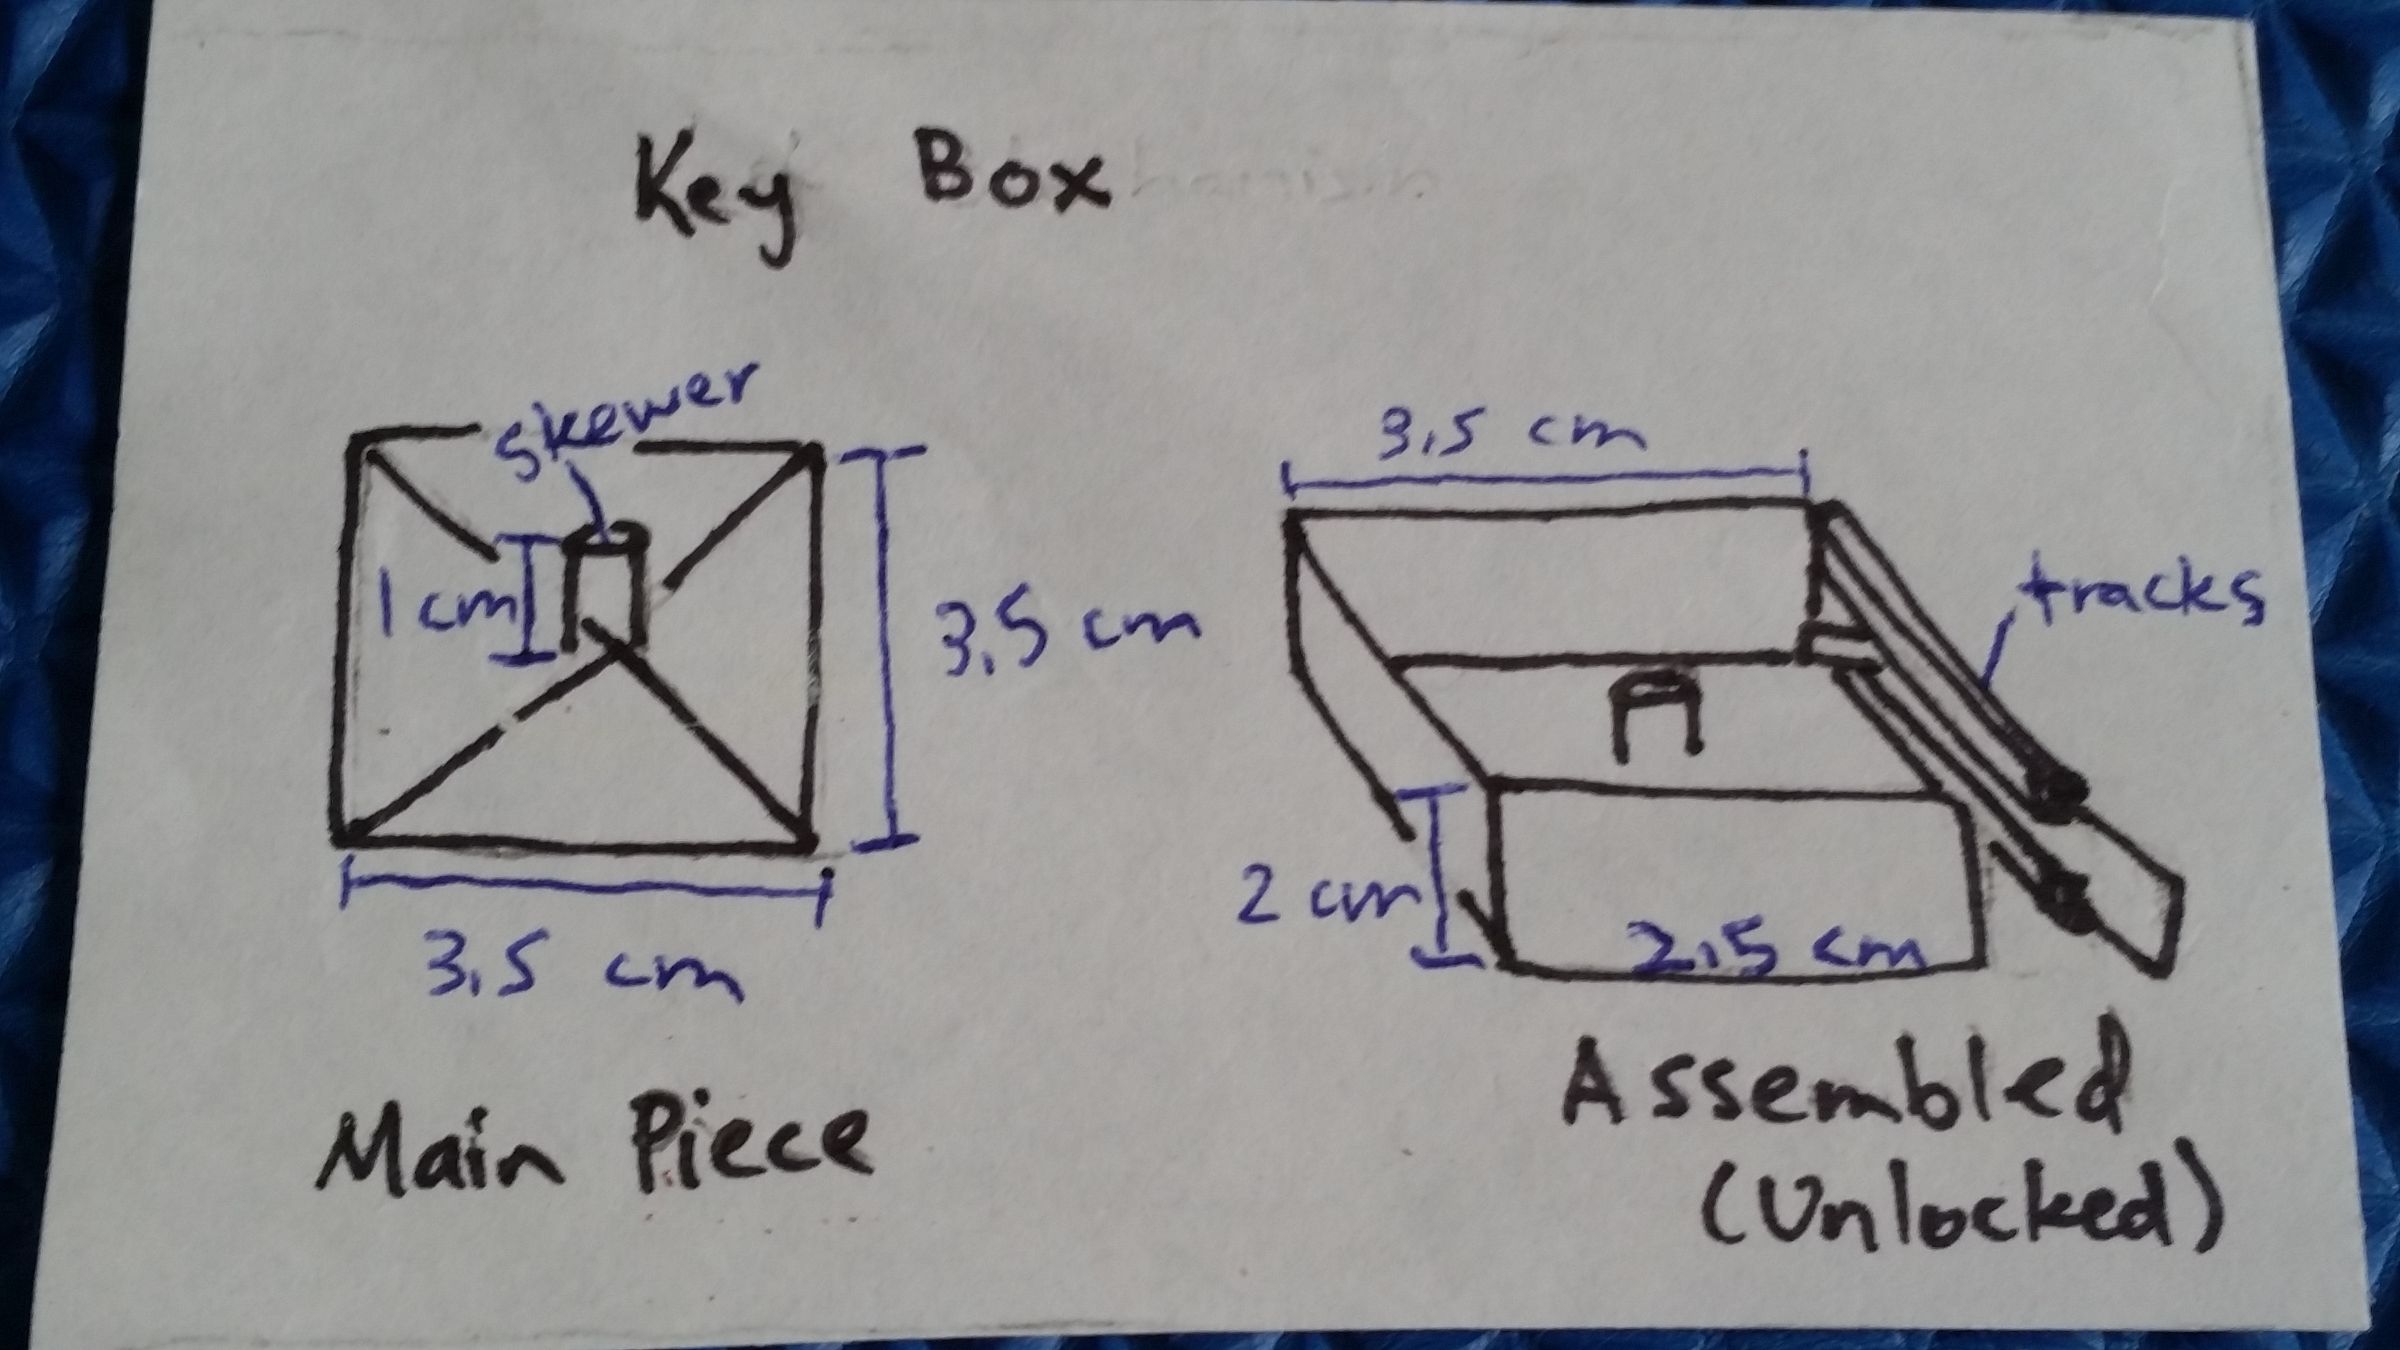 Key Box
skewer
1 cm
3.5 cm
3.5 cm
Main Piece
3.5 cm
tracks
2 cm
2.5 cm
Assembled
(Unlocked)